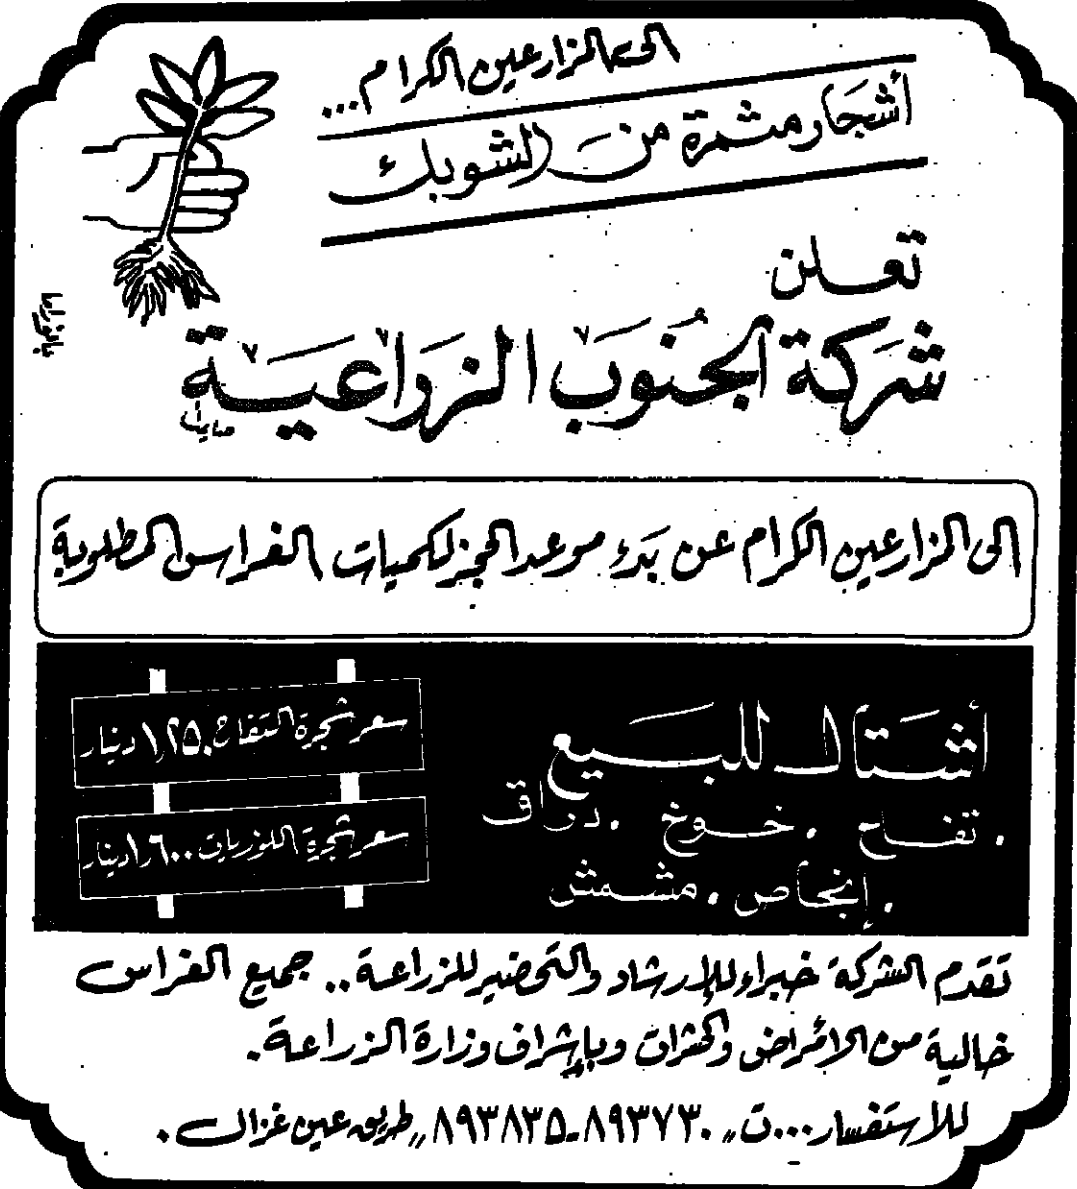 الى المزارعين الكرام...
أشجار مثمرة من الشوبك
تعلن
شركة الجنوب الزراعية
الى المزارعين الكرام عن بدء موعد الحجز لكميات الغراس المطلوبة
أشتال للبيع
. تفاح . خوخ . دراق
. إنجاص . مشمش
سعر شجرة التفاح ١,٢٥٠ دينار
سعر شجرة اللوزيات ١,٦٠٠ دينار
تقدم الشركة خبراء للإرشاد والتحضير للزراعة.. جميع الغراس
خالية من الامراض والحشرات وبإشراف وزارة الزراعة.
للاستفسار...ت,, ٨٩٣٧٣٠-٨٩٣٨٣٥,, طريق عين غزال.